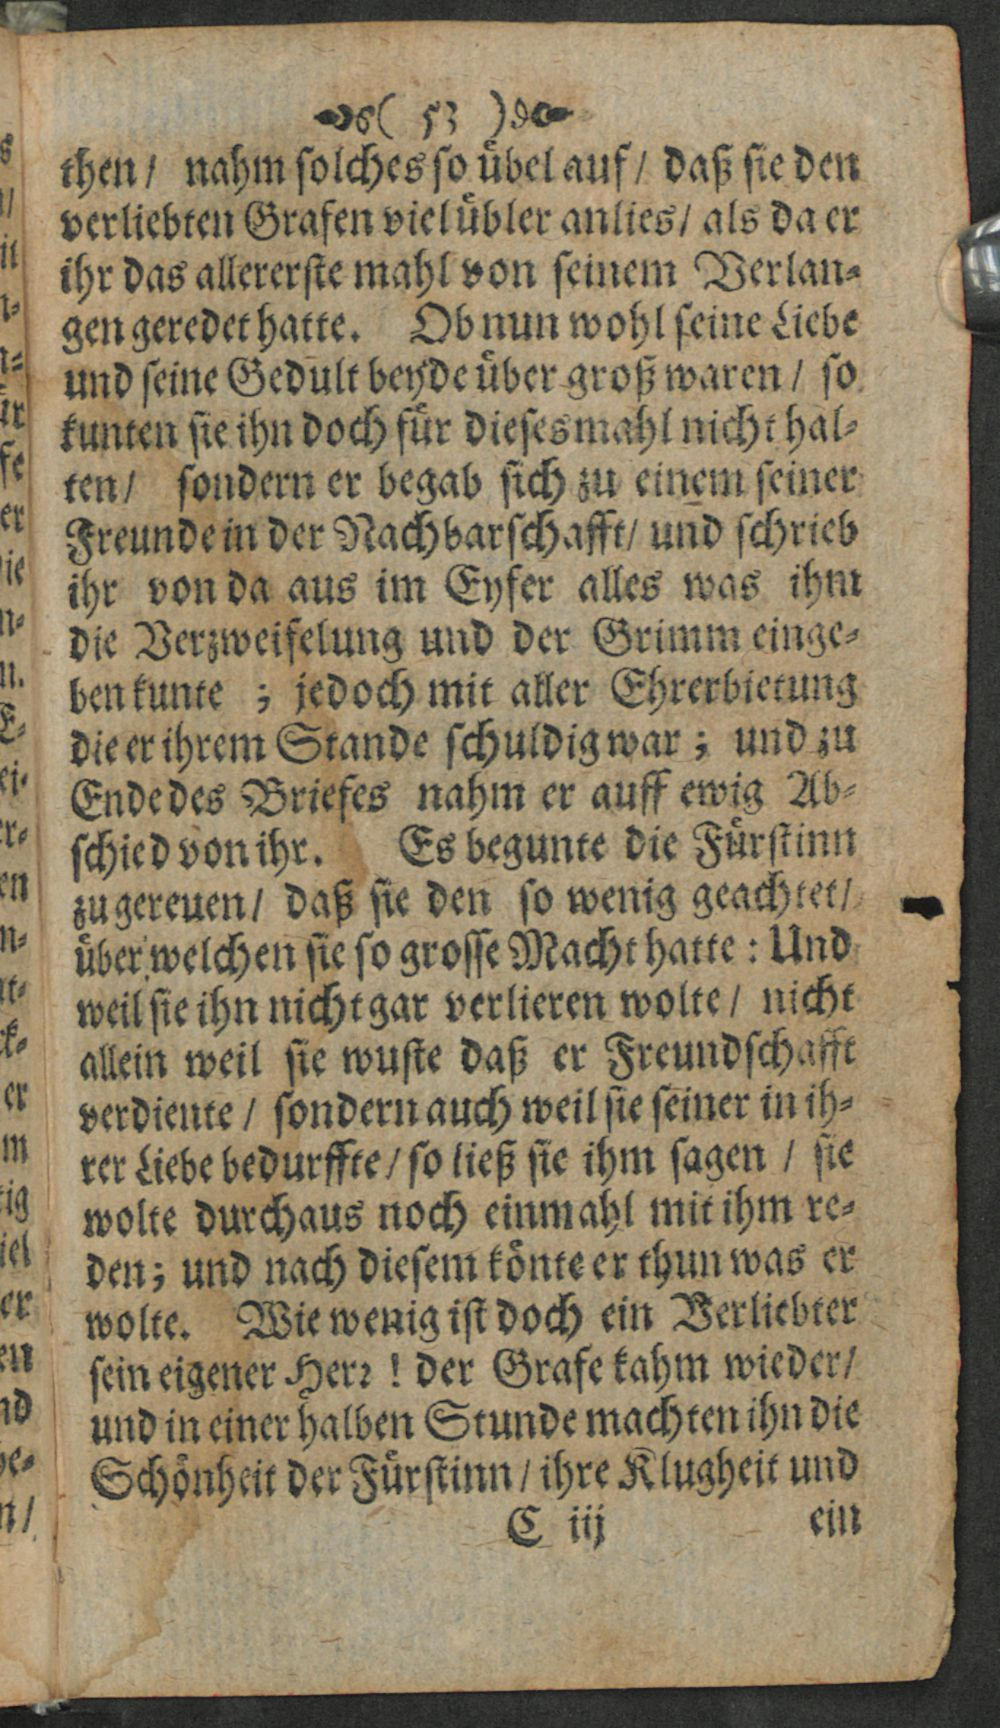 ( 53 )
then / nahm solches so übel auf / daß sie den
verliebten Grafen viel übler anlies / als da er
ihr das allererste mahl von seinem Verlan-
gen geredet hatte. Ob nun wohl seine Liebe
und seine Gedult beyde über groß waren / so
kunten sie ihn doch für dieses mahl nicht hal-
ten / sondern er begab sich zu einem seiner
Freunde in der Nachbarschafft / und schrieb
ihr von da aus im Eyfer alles was ihm
die Verzweifelung und der Grimm einge-
ben kunte ; jedoch mit aller Ehrerbietung
die er ihrem Stande schuldig war ; und zu
Ende des Briefes nahm er auff ewig Ab-
schied von ihr. Es begunte die Fürstinn
zu gereuen / daß sie den so wenig geachtet /
über welchen sie so grosse Macht hatte : Und
weil sie ihn nicht gar verlieren wolte / nicht
allein weil sie wuste daß er Freundschafft
verdiente / sondern auch weil sie seiner in ih-
rer Liebe bedurffte / so ließ sie ihm sagen / sie
wolte durchaus noch einmahl mit ihm re-
den ; und nach diesem könte er thun was er
wolte. Wie wenig ist doch ein Verliebter
sein eigener Herr ! der Grafe kahm wieder /
und in einer halben Stunde machten ihn die
Schönheit der Fürstinn / ihre Klugheit und
C iij ein